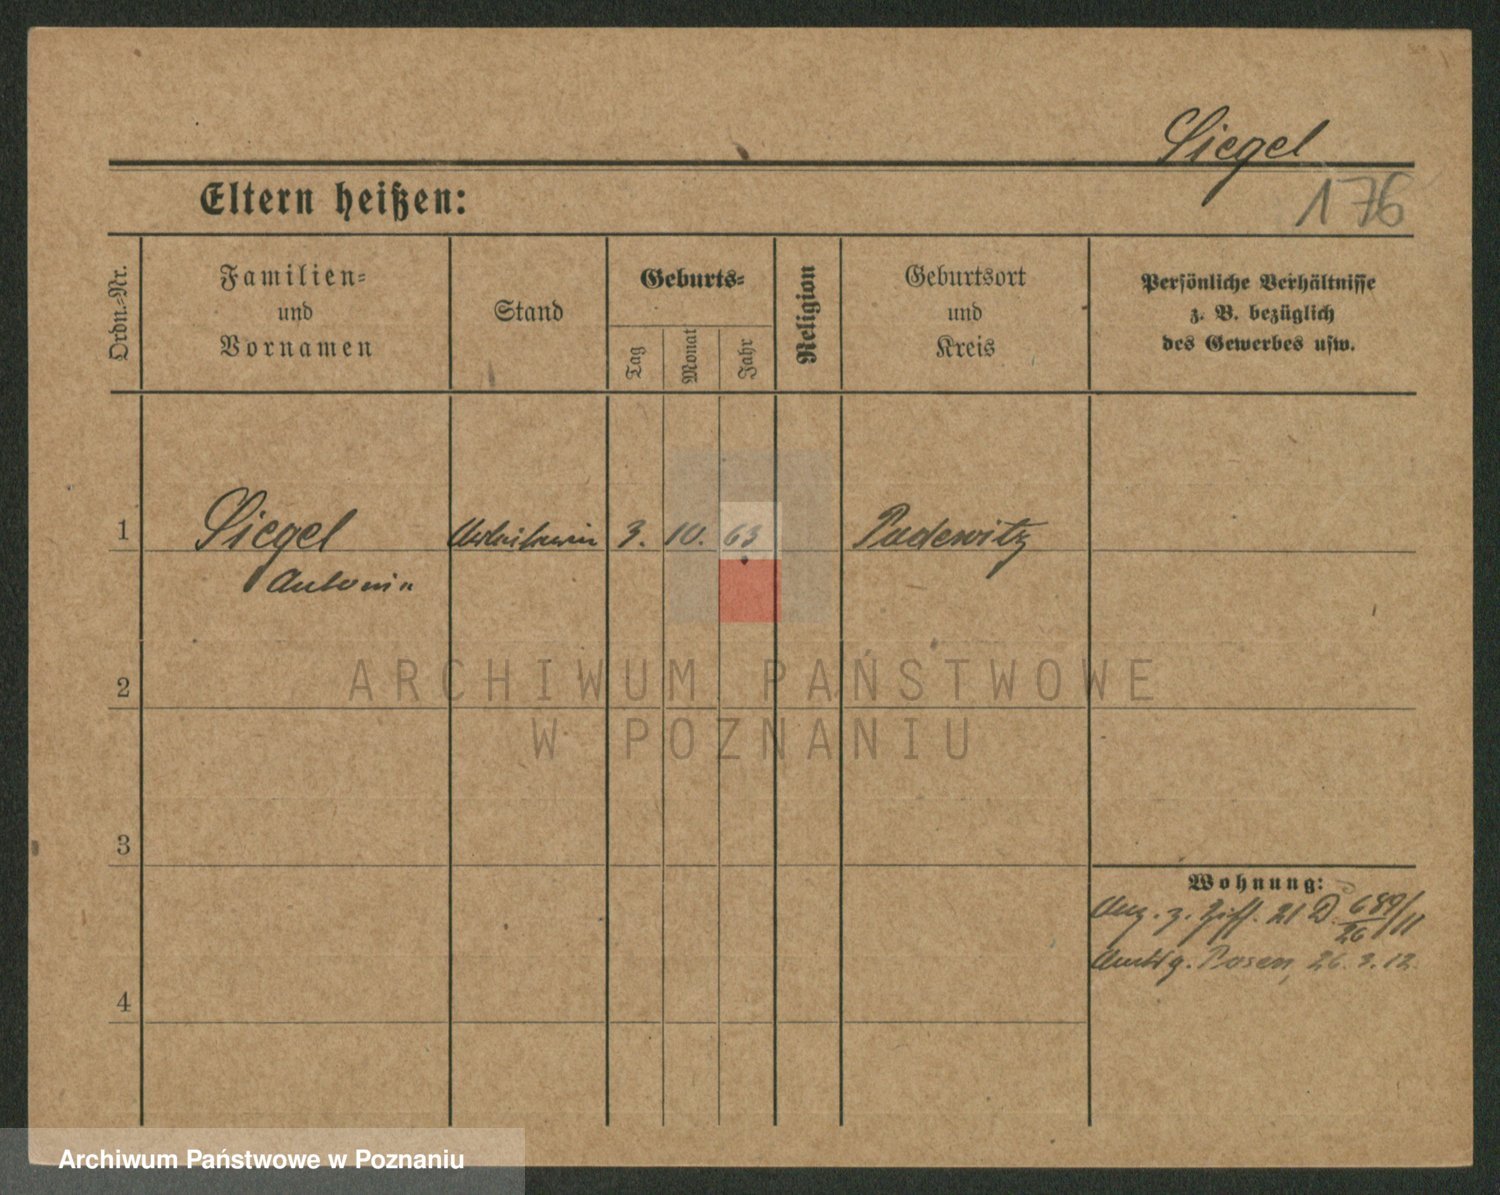 Siegel
176
Eltern heißen:
Ordn.-Nr.
Familien-
und
Vornamen
Stand
Geburts-
Tag
Monat
Jahr
Religion
Geburtsort
und
Kreis
Persönliche Verhältnisse
z. B. bezüglich
des Gewerbes usw.
1 Siegel Arbeiterin 3. 10. 63 Pudewitz
Antonin
ARCHIWUM PAŃSTWOWE
2
W POZNANIU
3
Wohnung:
z. Ziff. 21 D. 689/11
26
Posen, 26. 12
4
Archiwum Państwowe w Poznaniu